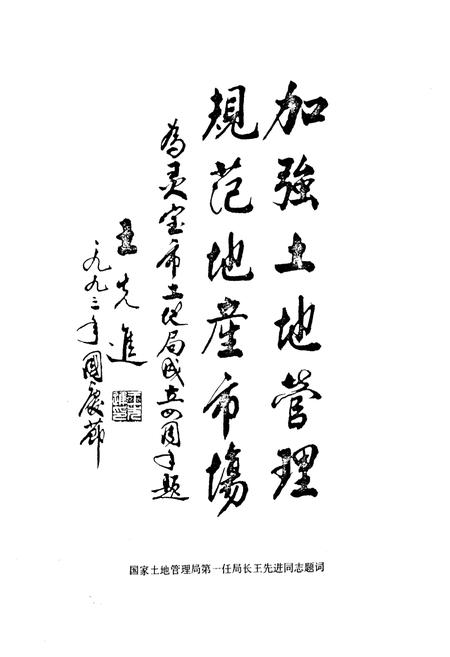 加強土地管理
規范地產市場
為灵宝市土地局成立四周年题
王先進
一九九二年国慶節
国家土地管理局第一任局长王先进同志题词